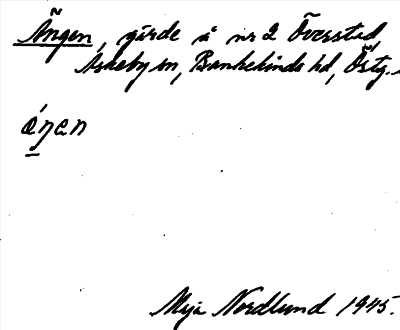 Ängen, gärde å nr 2 Överstad,
Askeby sn, Bankekinds hd, Östg.
ǽŋen
Maja Nordlund 1945.